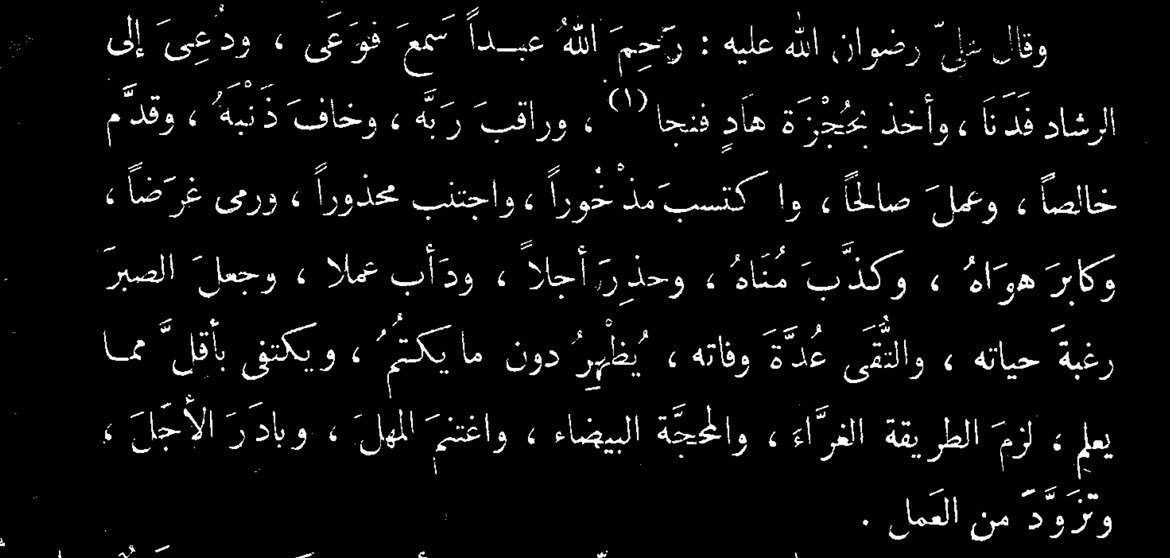 وقال عليّ رضوان الله عليه : رَحِمَ اللهُ عبـداً سَمعَ فوَعَى ، ودُعِىَ إلى
الرشاد فَدَنَا ، وأخذ بحُجْزَة هَادٍ فنجا (١) ، وراقبَ رَبَّه ، وخافَ ذَنْبَهُ ، وقدَّم
خالصاً ، وعملَ صالحاً ، واكتسبَ مذْخُوراً ، واجتنب محذوراً ، ورمى غرَضاً ،
وَكابرَ هوَاهُ ، وكذَّبَ مُنَاهُ ، وحذِرَ أجلاً ، ودَأب عملا ، وجعلَ الصبرَ
رغبةَ حياته ، والتُّقَى عُدَّةَ وفاته ، يُظْهِرُ دون ما يكتُمُ ، ويكتفى بأقلَّ ممـا
يعلم ، لزمَ الطريقة الغرَّاءَ ، والمحجَّة البيضاء ، واغتنمَ المهلَ ، وبادَرَ الأجَلَ ،
وتزوَّدَ من العَمل .